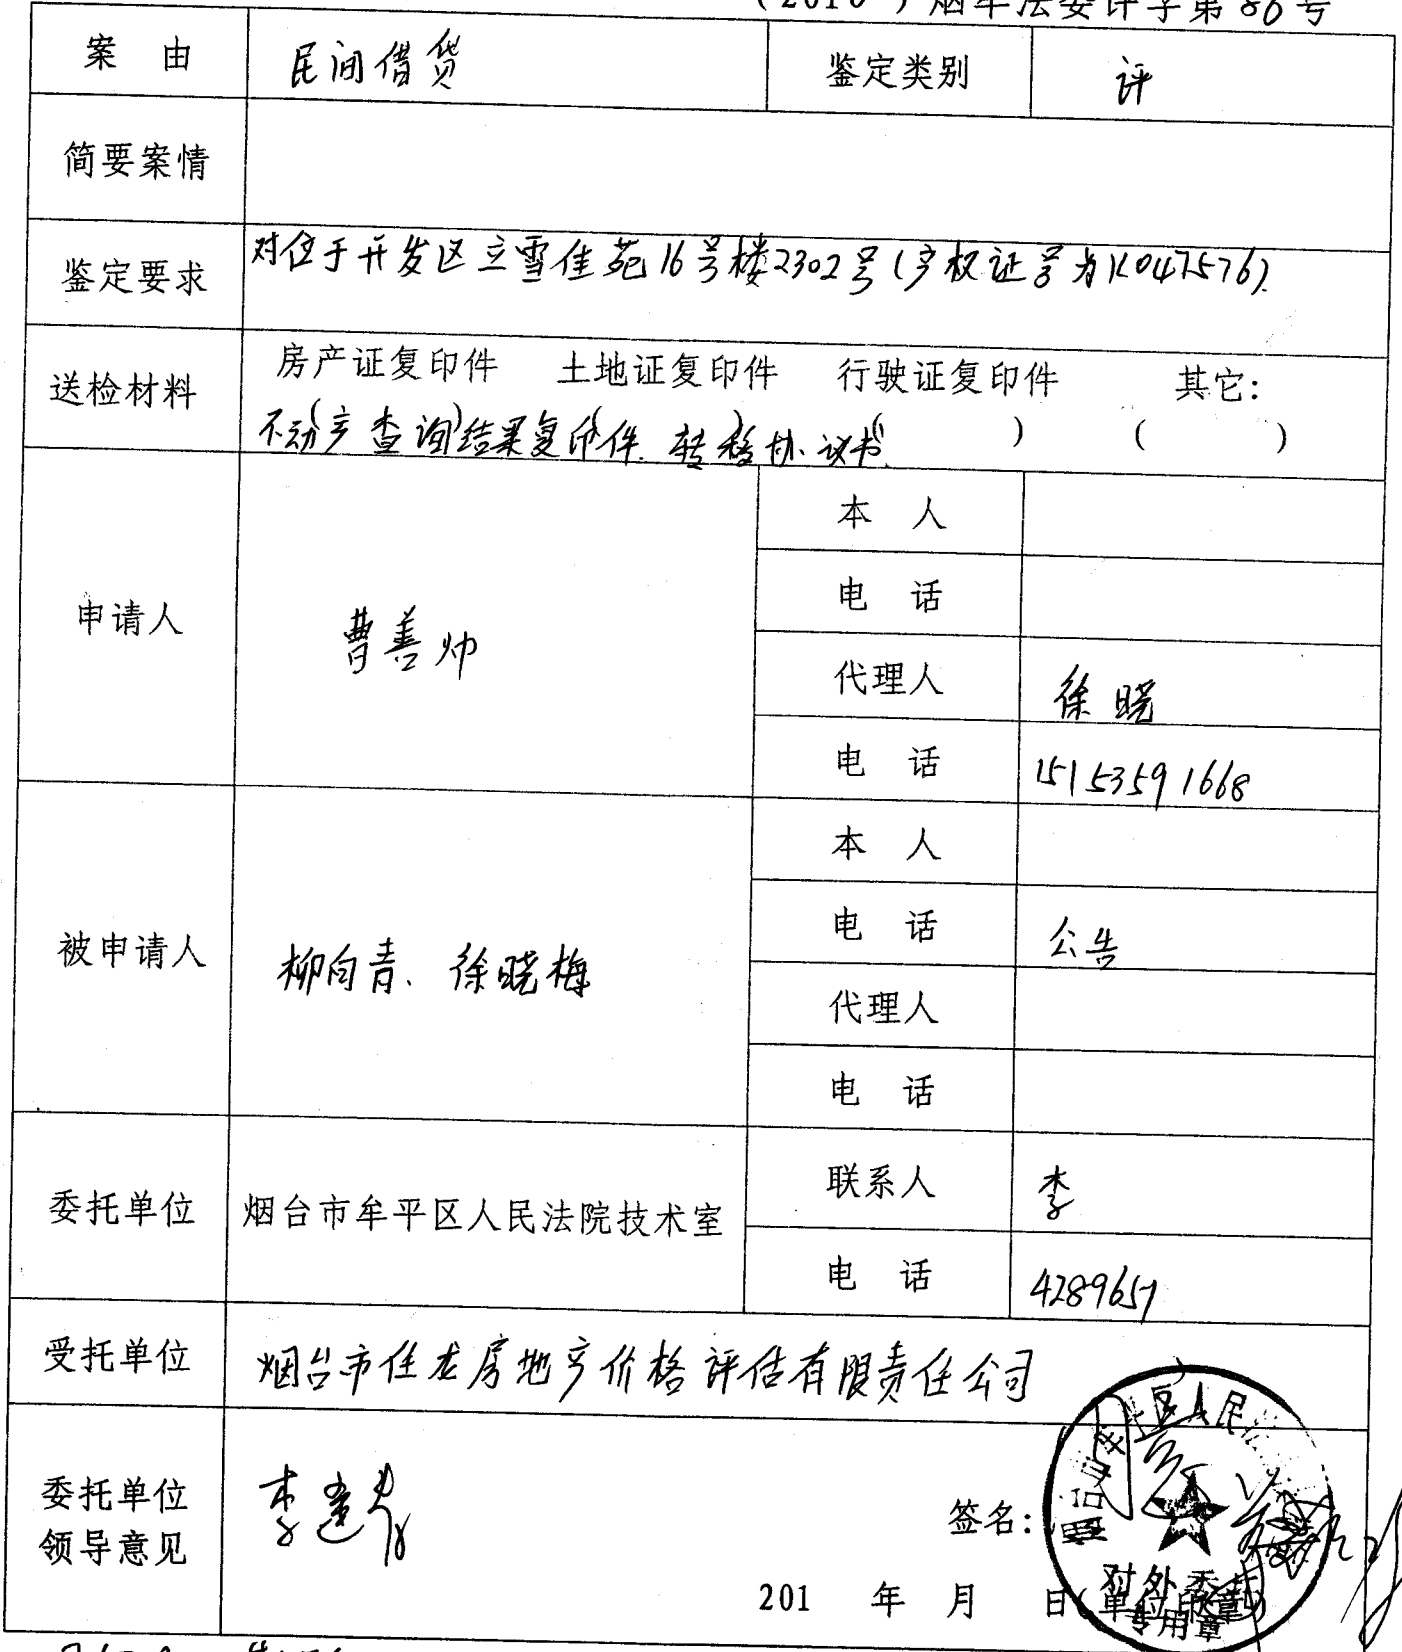 (2016 ) 烟牟法委评字第86号
案 由 民间借贷 鉴定类别 评
简要案情
鉴定要求 对位于开发区立雪佳苑16号楼2302号(产权证号为K047576).
送检材料 房产证复印件 土地证复印件 行驶证复印件 其它:
不动产查询结果复印件. 转移协议书. ( ) ( )
申请人 曹善帅
本 人
电 话
代理人 徐晓
电 话 15153591668
被申请人 柳向青、徐晓梅
本 人
电 话 公告
代理人
电 话
委托单位 烟台市牟平区人民法院技术室
联系人 李
电 话 4289657
受托单位 烟台市佳龙房地产价格评估有限责任公司
委托单位
领导意见
签名:
201 年 月 日(单位印章)
对外委托
专用章